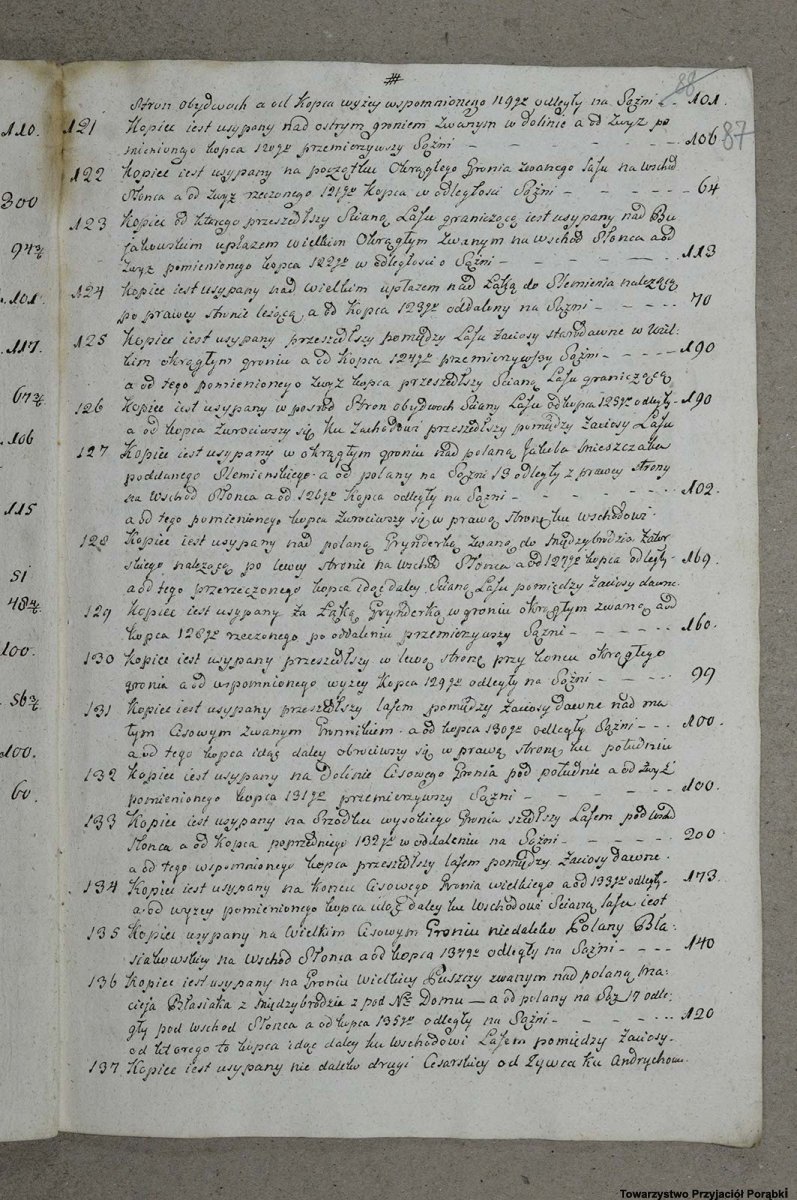 #
88
87
Stron obydwóch a od Kopca wyżey wspomnionego 119go odległy na Sążni - - 101.
110.
121 Kopiec iest usypany nad ostrym groniem zwanym w dolinie a od zwyż po
mienionego kopca 120go przemierzywszy Sążni - - - - 106
122 Kopiec iest usypany na początku Okrągłego Gronia zwanego lasu na wschód
300
Słońca a od zwyż rzeczonego 121go Kopca w odległości Sążni - - - - 64
123 Kopiec od którego przeszedłszy Scianą Lasu graniczącą iest usypany nad Bu
94 2/4
jakowskim upłazem wielkim Okrągłym zwanym na wschód Słońca a od
zwyż pomienionego kopca 122go w odległości o Sążni - - - - 113
101.
124 Kopiec iest usypany nad wielkim upłazem nad Łąką do Slemienia należącą
po prawey stronie leżącą, a od Kopca 123go oddalony na Sążni - - - - 70
117.
125 Kopiec iest usypany przeszedłszy pomiędzy Lasu zaciosy starodawne w Wiel-
kim okrągłym groniu a od Kopca 124go przemierzywszy Sążni - - - - 190
67 2/4
a od tego pomienionego zwyż kopca przeszedłszy Scianą Lasu graniczącą
126 Kopiec iest usypany w pośród Stron obydwoch Sciany Lasu od kopca 125go odległy - 190
106
a od kopca zwrociwszy się ku zachodowi przeszedłszy pomiędzy zaciosy Lasu
127 Kopiec iest usypany w okrągłym groniu nad polaną Jakuba Mieszczaka
poddanego Slemienskiego - a od polany na Sążni 13 odległy z prawey strony
115
na Wschod Słonca a od 126go Kopca odległy na Sążni - - - - 102.
a od tego pomienionego kopca zwrociwszy się w prawą stronę ku wschodowi
128 Kopiec iest usypany nad polaną Grynderką zwaną do Międzybrodzia
skiego należącą po lewey stronie na wschod Słonca a od 127go kopca odległy - 169.
51
a od tego przerzeczonego kopca idąc daley Scianą Lasu pomiędzy zaciosy dawne.
48 2/4
129 Kopiec iest usypany za Łąką Grynderką w groniu okrągłym zwaną a od
kopca 128go rzeczonego po oddaleniu przemierzywszy Sążni - - - - 160.
100.
130 Kopiec iest usypany przeszedłszy w lewą stronę przy koncu okrągłego
gronia a od wspomnionego wyżey Kopca 129go odległy na Sążni - - - - 99
56 2/4
131 Kopiec iest usypany przeszedłszy lasem pomiędzy zaciosy dawne nad ma
łym Cisowym zwanym Gronikiem - a od kopca 130go odległy Sążni - - - 100.
100.
a od tego kopca idąc daley obrociwszy się w prawą stronę ku południu
132 Kopiec iest usypany na Dolinie Cisowego Gronia pod południe a od zwyż
60.
pomienionego kopca 131go przemierzywszy Sążni - - - - 100.
133 Kopiec iest usypany na Srzodku wysokiego Gronia szedłszy Lasem pod wschod
Słonca a od Kopca poprzedniego 132go w oddaleniu na Sążni - - - - 200
a od tego wspomnionego kopca przeszedłszy lasem pomiędzy zaciosy dawne.
134 Kopiec iest usypany na Koncu Cisowego Gronia wielkiego a od 133go odległy - 173.
a od wyżey pomienionego kopca idąc daley ku Wschodowi Scianą Lasu iest
135 Kopiec usypany na Wielkim Cisowym Groniu niedaleko Polany Bła-
siakowskiey na Wschod Słonca a od kopca 134go odległy na Sążni - - - - 140
136 Kopiec iest usypany na Groniu Wielkiey Puszczy zwanym nad polaną Ma
cieja Błasiaka z Międzybrodzia z pod Nro Domu — a od polany na Sąż 17 odle-
gły pod wschod Słonca a od kopca 135go odległy na Sążni - - - - 120
od ktorego to kopca idąc daley ku Wschodowi Lasem pomiędzy zaciosy -
137 Kopiec iest usypany nie daleko drugi Cesarskiey od Zywca ku Andrychowu
Towarzystwo Przyjaciół Porąbki